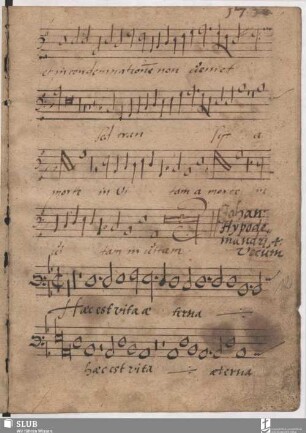 et in condemnatione non veniet
sed tran
morte in vi
tam a morte
tam in vitam
Johan:
Hypode
mandri 4
Vocum
Hæc est vita æ terna
hæc est vita æterna
SLUB
Wir führen Wissen.